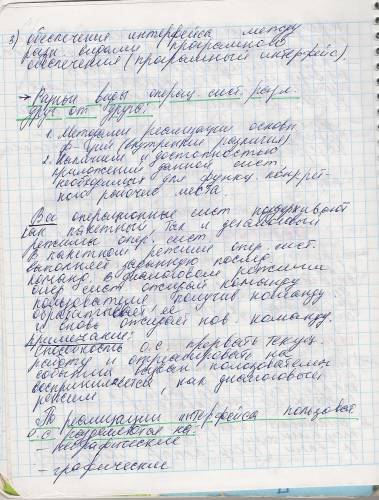 3) обеспечения интерфейса между
разн. видами програмного
обеспечения (програмный интерфейс).
→ Разные виды операц. сист. разл.
друг от друга:
1. Методами реализации основн.
ф-ций (внутренния различия)
2. Наличием и доступностью
приложений данной сист.
необходимых для функц. конкрет-
ного рабочие места.
Все операционные сист поддерживают
как пакетный, так и диалоговый
режимы опер. сист.
В пакетном режиме опер. сист.
выполняет заданную послед.
команд. в диалоговом режиме
опер сист ожидает команду
пользователя, получив команду
обрабатывает её
и вновь ожидает нов команду.
Примечание:
Способность о.с. прервать текущ.
работу и отреагировать на
события вызван пользователем
воспринимается, как диалоговый
режим
По реализации интерфейса пользоват
о.с разделяются на:
- неграфические
- графические